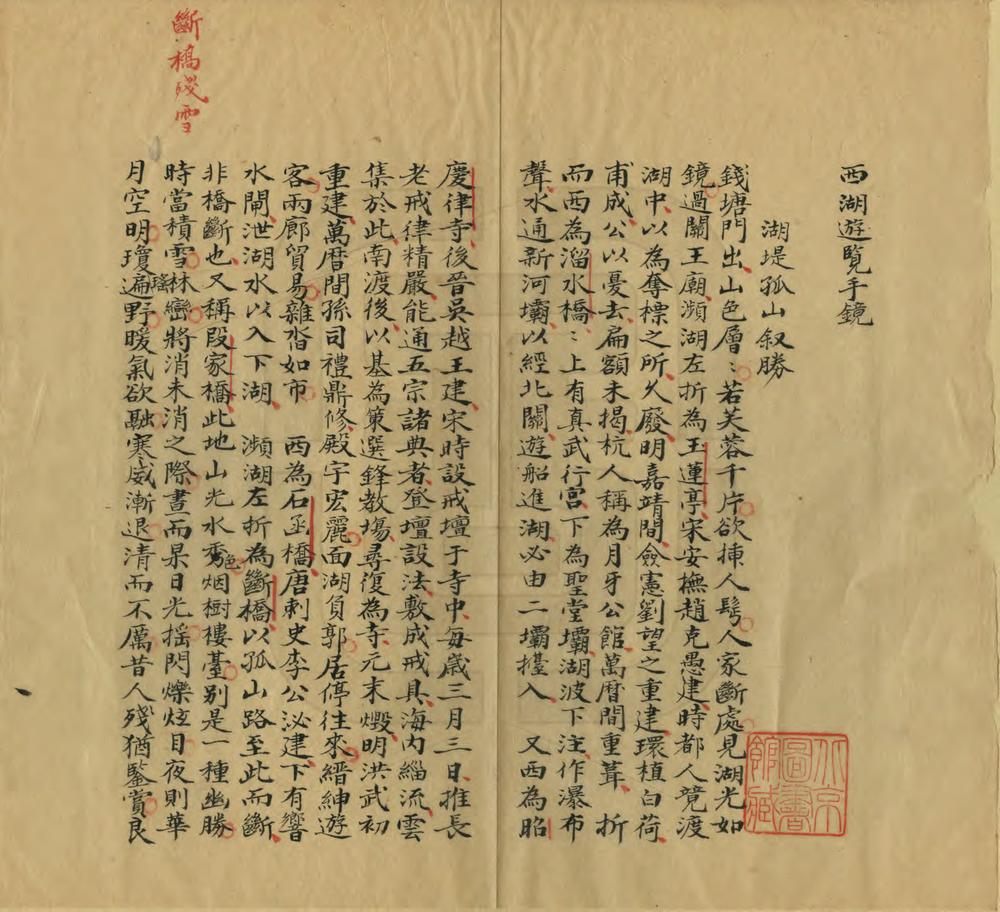 西湖遊覽手鏡
湖堤孤山叙勝
錢塘門出山色層〻若芙蓉千片欲揷人髩人家斷處見湖光如
鏡過關王廟瀕湖左折為玉蓮亭宋安撫趙克愚建時都人競渡
湖中以為奪標之所久廢明嘉靖間僉憲劉望之重建環植白荷
甫成公以憂去扁額未揭杭人稱為月牙公館萬曆間重葺 折
而西為溜水橋〻上有真武行宮下為聖堂壩湖波下注作瀑布
聲水通新河壩以經北關遊船進湖必由二壩擡入 又西為昭
慶律寺後晉吳越王建宋時設戒壇于寺中每歲三月三日推長
老戒律精嚴能通五宗諸典者登壇設法敷成戒具海內緇流雲
集於此南渡後以基為策選鋒教塲尋復為寺元末燬明洪武初
重建萬曆間孫司禮鼎修殿宇宏麗面湖負郭居停往來縉紳遊
客兩廊貿易雜沓如市 西為石函橋唐刺史李公泌建下有響
水閘泄湖水以入下湖 瀕湖左折為斷橋以孤山路至此而斷
非橋斷也又稱段家橋此地山光水秀色烟樹樓臺别是一種幽勝
時當積雪林巒將消未消之際晝而杲日光摇閃爍炫目夜則華
月空明瓊瑤遍野暖氣欲融寒威漸退清而不厲昔人殘猶鑒賞良
斷橋殘雪
北京圖書館藏